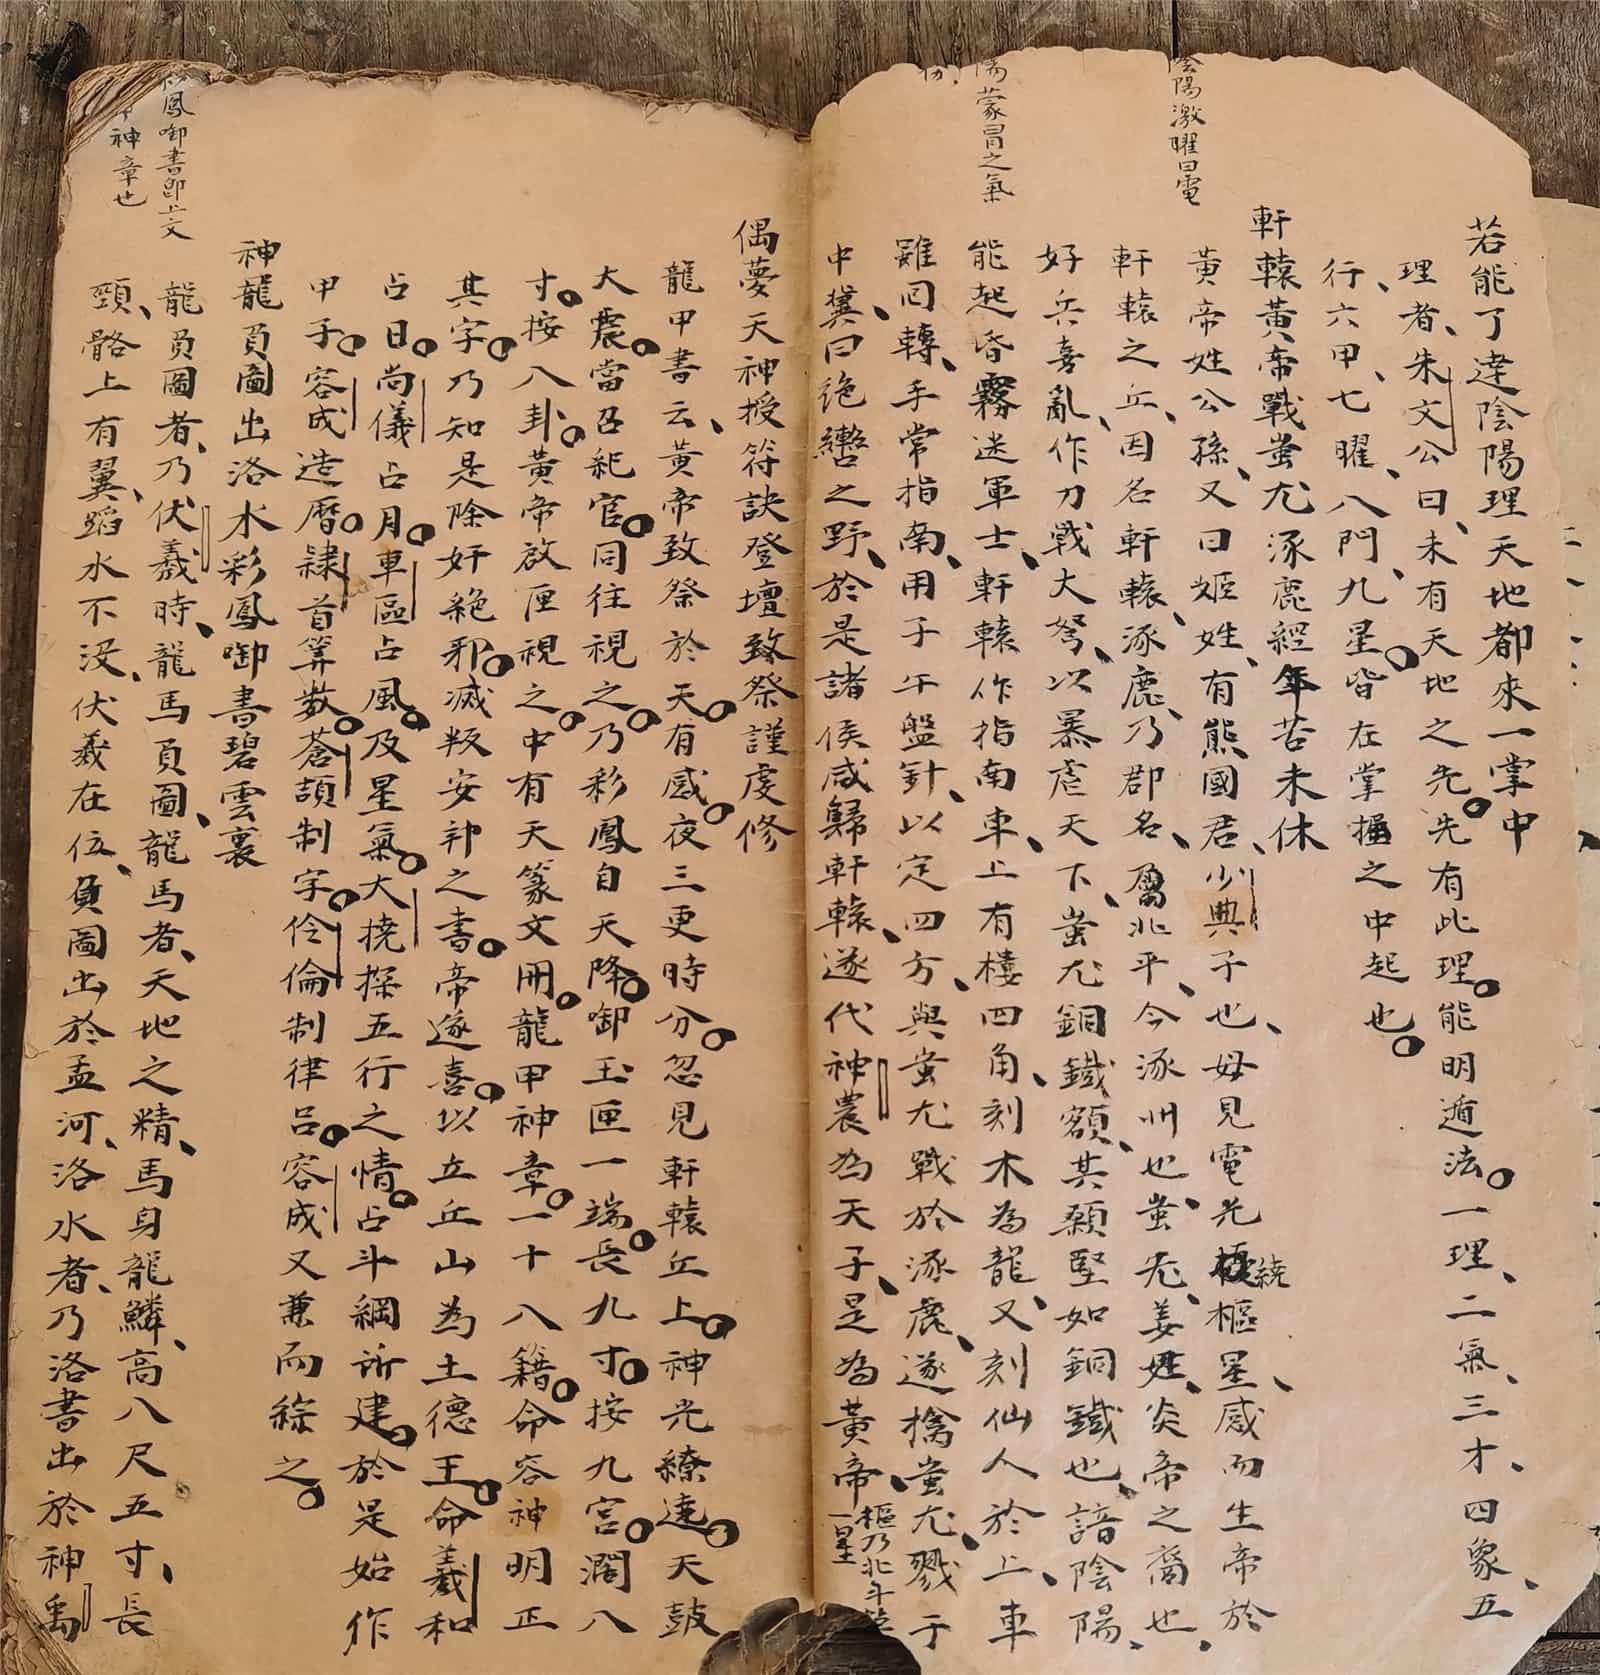 陰陽激曜曰電
蒙冒之氣
若能了達陰陽理天地都來一掌中
理者、朱文公曰、未有天地之先。先有此理。能明遁法。一理、二氣、三才、四象、五
行、六甲、七曜、八門、九星。皆在掌握之中起也。
軒轅黃帝戰蚩尤涿鹿經年苦未休
黃帝姓公孫、又曰姬姓、有熊國君、少典子也、母見電光繞樞星、感而生帝於
軒轅之丘、因名軒轅、涿鹿、乃郡名、屬北平、今涿州也、蚩尤、姜姓、炎帝之裔也、
好兵喜亂、作刀戟大弩、以暴虐天下、蚩尤銅鐵額、其顙堅如銅鐵也、諳陰陽、
能起昏霧迷軍士、軒轅作指南車、上有樓四角、刻木為龍、又刻仙人於上、車
雖回轉、手常指南、用子午盤針、以定四方、與蚩尤戰於涿鹿、遂擒蚩尤、戮于
中冀、曰絶轡之野、於是諸侯咸歸軒轅、遂代神農為天子、是為黃帝、
樞乃北斗
一星
偶夢天神授符訣登壇致祭謹虔修
龍甲書云、黃帝致祭於天。有感。夜三更時分。忽見軒轅丘上。神光繚遶。天鼓
大震。當召祀官。同往視之。乃彩鳳自天降。啣玉匣一端。長九寸。按九宮。濶八
寸。按八卦。黃帝啟匣視之。中有天篆文冊。龍甲神章。一十八籍。命容神明正
其字。乃知是除奸絶邪。滅叛安邦之書。帝遂喜。以立丘山為土德王。命羲和
占日。尚儀占月。車區占風。及星氣。大撓探五行之情。占斗綱所建。於是始作
甲子。容成造曆。隸首筭數。蒼頡制字。伶倫制律呂。容成又兼而綜之。
神龍負圖出洛水彩鳳啣書碧雲裏
鳳啣書即上文
神章也
龍負圖者、乃伏羲時、龍馬負圖、龍馬者、天地之精、馬身龍鱗、高八尺五寸、長
頸、骼上有翼、蹈水不没、伏羲在位、負圖出於孟河、洛水者、乃洛書出於神禹